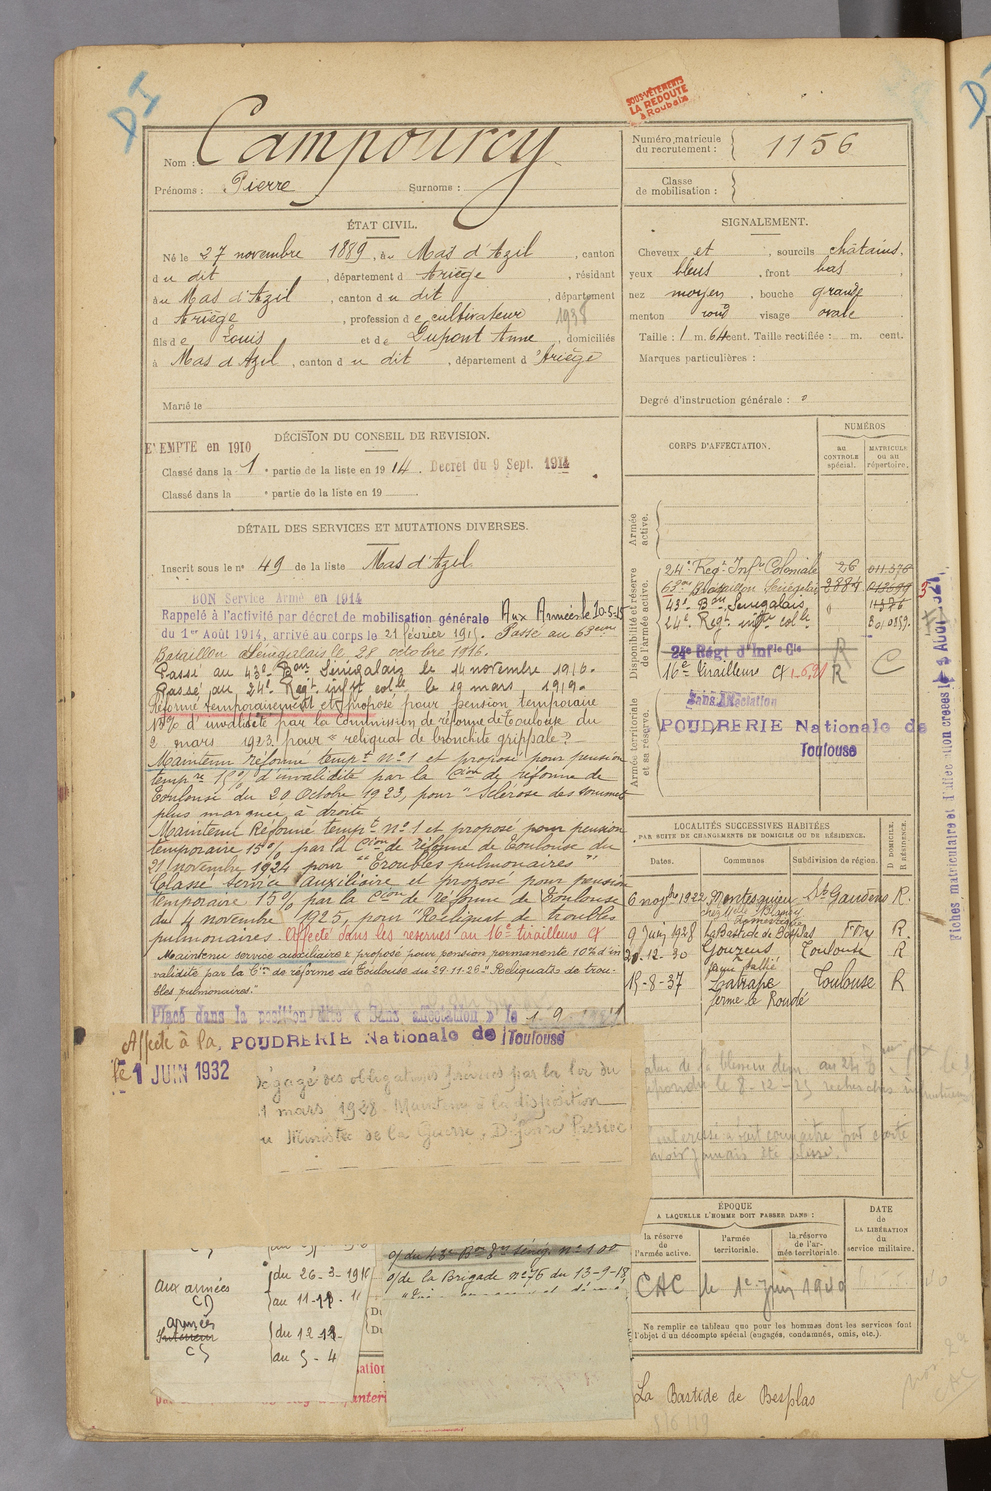 DI
SOUS-VÊTEMENTS
LA REDOUTE
à Roubaix
Nom : Campourcy
Prénoms : Pierre Surnoms :
Numéro matricule
du recrutement : 1156
Classe
de mobilisation :
ÉTAT CIVIL.
Né le 27 novembre 1889, au Mas d'Azil, canton
du dit, département d Ariège, résidant
au Mas d'Azil, canton du dit, département
d Ariège, profession de cultivateur 1938
fils de Louis et de Dupont Anne, domiciliés
à Mas d'Azil, canton du dit, département d'Ariège
Marié le
SIGNALEMENT.
Cheveux et, sourcils châtains,
yeux bleus, front bas,
nez moyen, bouche grande
menton rond visage ovale
Taille : 1 m. 64 cent. Taille rectifiée : m. cent.
Marques particulières :
Degré d'instruction générale :
DÉCISION DU CONSEIL DE REVISION.
E EMPTE en 1910
Classé dans la 1e partie de la liste en 1914. Decret du 9 Sept. 1914
Classé dans la e partie de la liste en 19
DÉTAIL DES SERVICES ET MUTATIONS DIVERSES.
Inscrit sous le no 49 de la liste Mas d'Azil
BON Service Armé en 1914
Rappelé à l'activité par décret de mobilisation générale Aux Armées le 20-5-15
du 1er Août 1914, arrivé au corps le 21 février 1915. Passé au 68eme
Bataillon Sénégalais le 28 octobre 1916.
Passé au 43e Bon Sénégalais le 14 novembre 1916.
Passé au 24e Regt infrt colle le 19 mars 1919.
Réformé temporairement et proposé pour pension temporaire
d'invalidité par la commission de réforme de Toulouse du
2 mars 1923 pour "reliquat de bronchite grippale"
Maintenu réformé tempt no 1 et proposé pour pension
tempre 15% d'invalidité par la Cion de réforme de
Toulouse du 20 Octobre 1923, pour "Sclérose des sommets
plus marquée à droite
Maintenu Réformé tempt no 1 et proposé pour pension
temporaire 15% par la Cion de réforme de Toulouse du
21 novembre 1924 pour "Troubles pulmonaires"
Classé Service Auxiliaire et proposé pour pension
temporaire 15% par la Cion de réforme de Toulouse
du 4 novembre 1925, pour "Reliquat de troubles
pulmonaires. Affecté dans les reserves au 16e tirailleurs
Maintenu service auxiliaire & proposé pour pension permanente 10% d'in
validité par la Con de réforme de Toulouse du 29.11.26. "Reliquats de trou-
bles pulmonaires."
Placé dans la position dite « Sans affectation » le 1 9
Affecté à la POUDRERIE Nationale de Toulouse
le 1 JUIN 1932
Dégagé des obligations prévues par la loi du
1 mars 1928. Maintenu à la disposition
du Ministre de la Guerre. Défense Passive
CORPS D'AFFECTATION.
NUMÉROS
au
CONTROLE
spécial.
MATRICULE
ou au
répertoire.
Armée
active.
Disponibilité et réserve
de l'armée active.
24e Regt Infie Coloniale 26 011.578
68me Bataillon Sénégalais 3884 5
43e Bon Sénégalais 11586
24e Regt infie colle
24e Régt d'Infie Cle R
16e Tirailleurs R C
Armée territoriale
et sa réserve.
Sans Affectation
POUDRERIE Nationale de
Toulouse
LOCALITÉS SUCCESSIVES HABITÉES
PAR SUITE DE CHANGEMENTS DE DOMICILE OU DE RÉSIDENCE.
D DOMICILE.
R RÉSIDENCE.
Dates. Communes. Subdivision de région.
6 novbre 1922 Montesquieu St Gaudens R.
9 Juin 1928 La Bastide de Besplas Foix R
20-12-30 Gouzens Toulouse R
15-8-37 Latrape Toulouse R
ferme le Roudé
Fiches matriculaire et d'affectation créées le 3 AOUT 1921
ÉPOQUE
A LAQUELLE L'HOMME DOIT PASSER DANS :
la réserve
de
l'armée active.
l'armée
territoriale.
la réserve
de l'ar-
mée territoriale.
DATE
de
LA LIBÉRATION
du
service militaire.
CAC le 1er juin 1940
Ne remplir ce tableau que pour les hommes dont les services font
l'objet d'un décompte spécial (engagés, condamnés, omis, etc.).
aux armées
CD
du 26-3-1916
au 11-11-
armées
Intérieur
CS
du 12-11-
au 5-4
o/ du 43e Bon Sénég. no 100
o/ de la Brigade no 76 du 13-9-18
La Bastide de Besplas